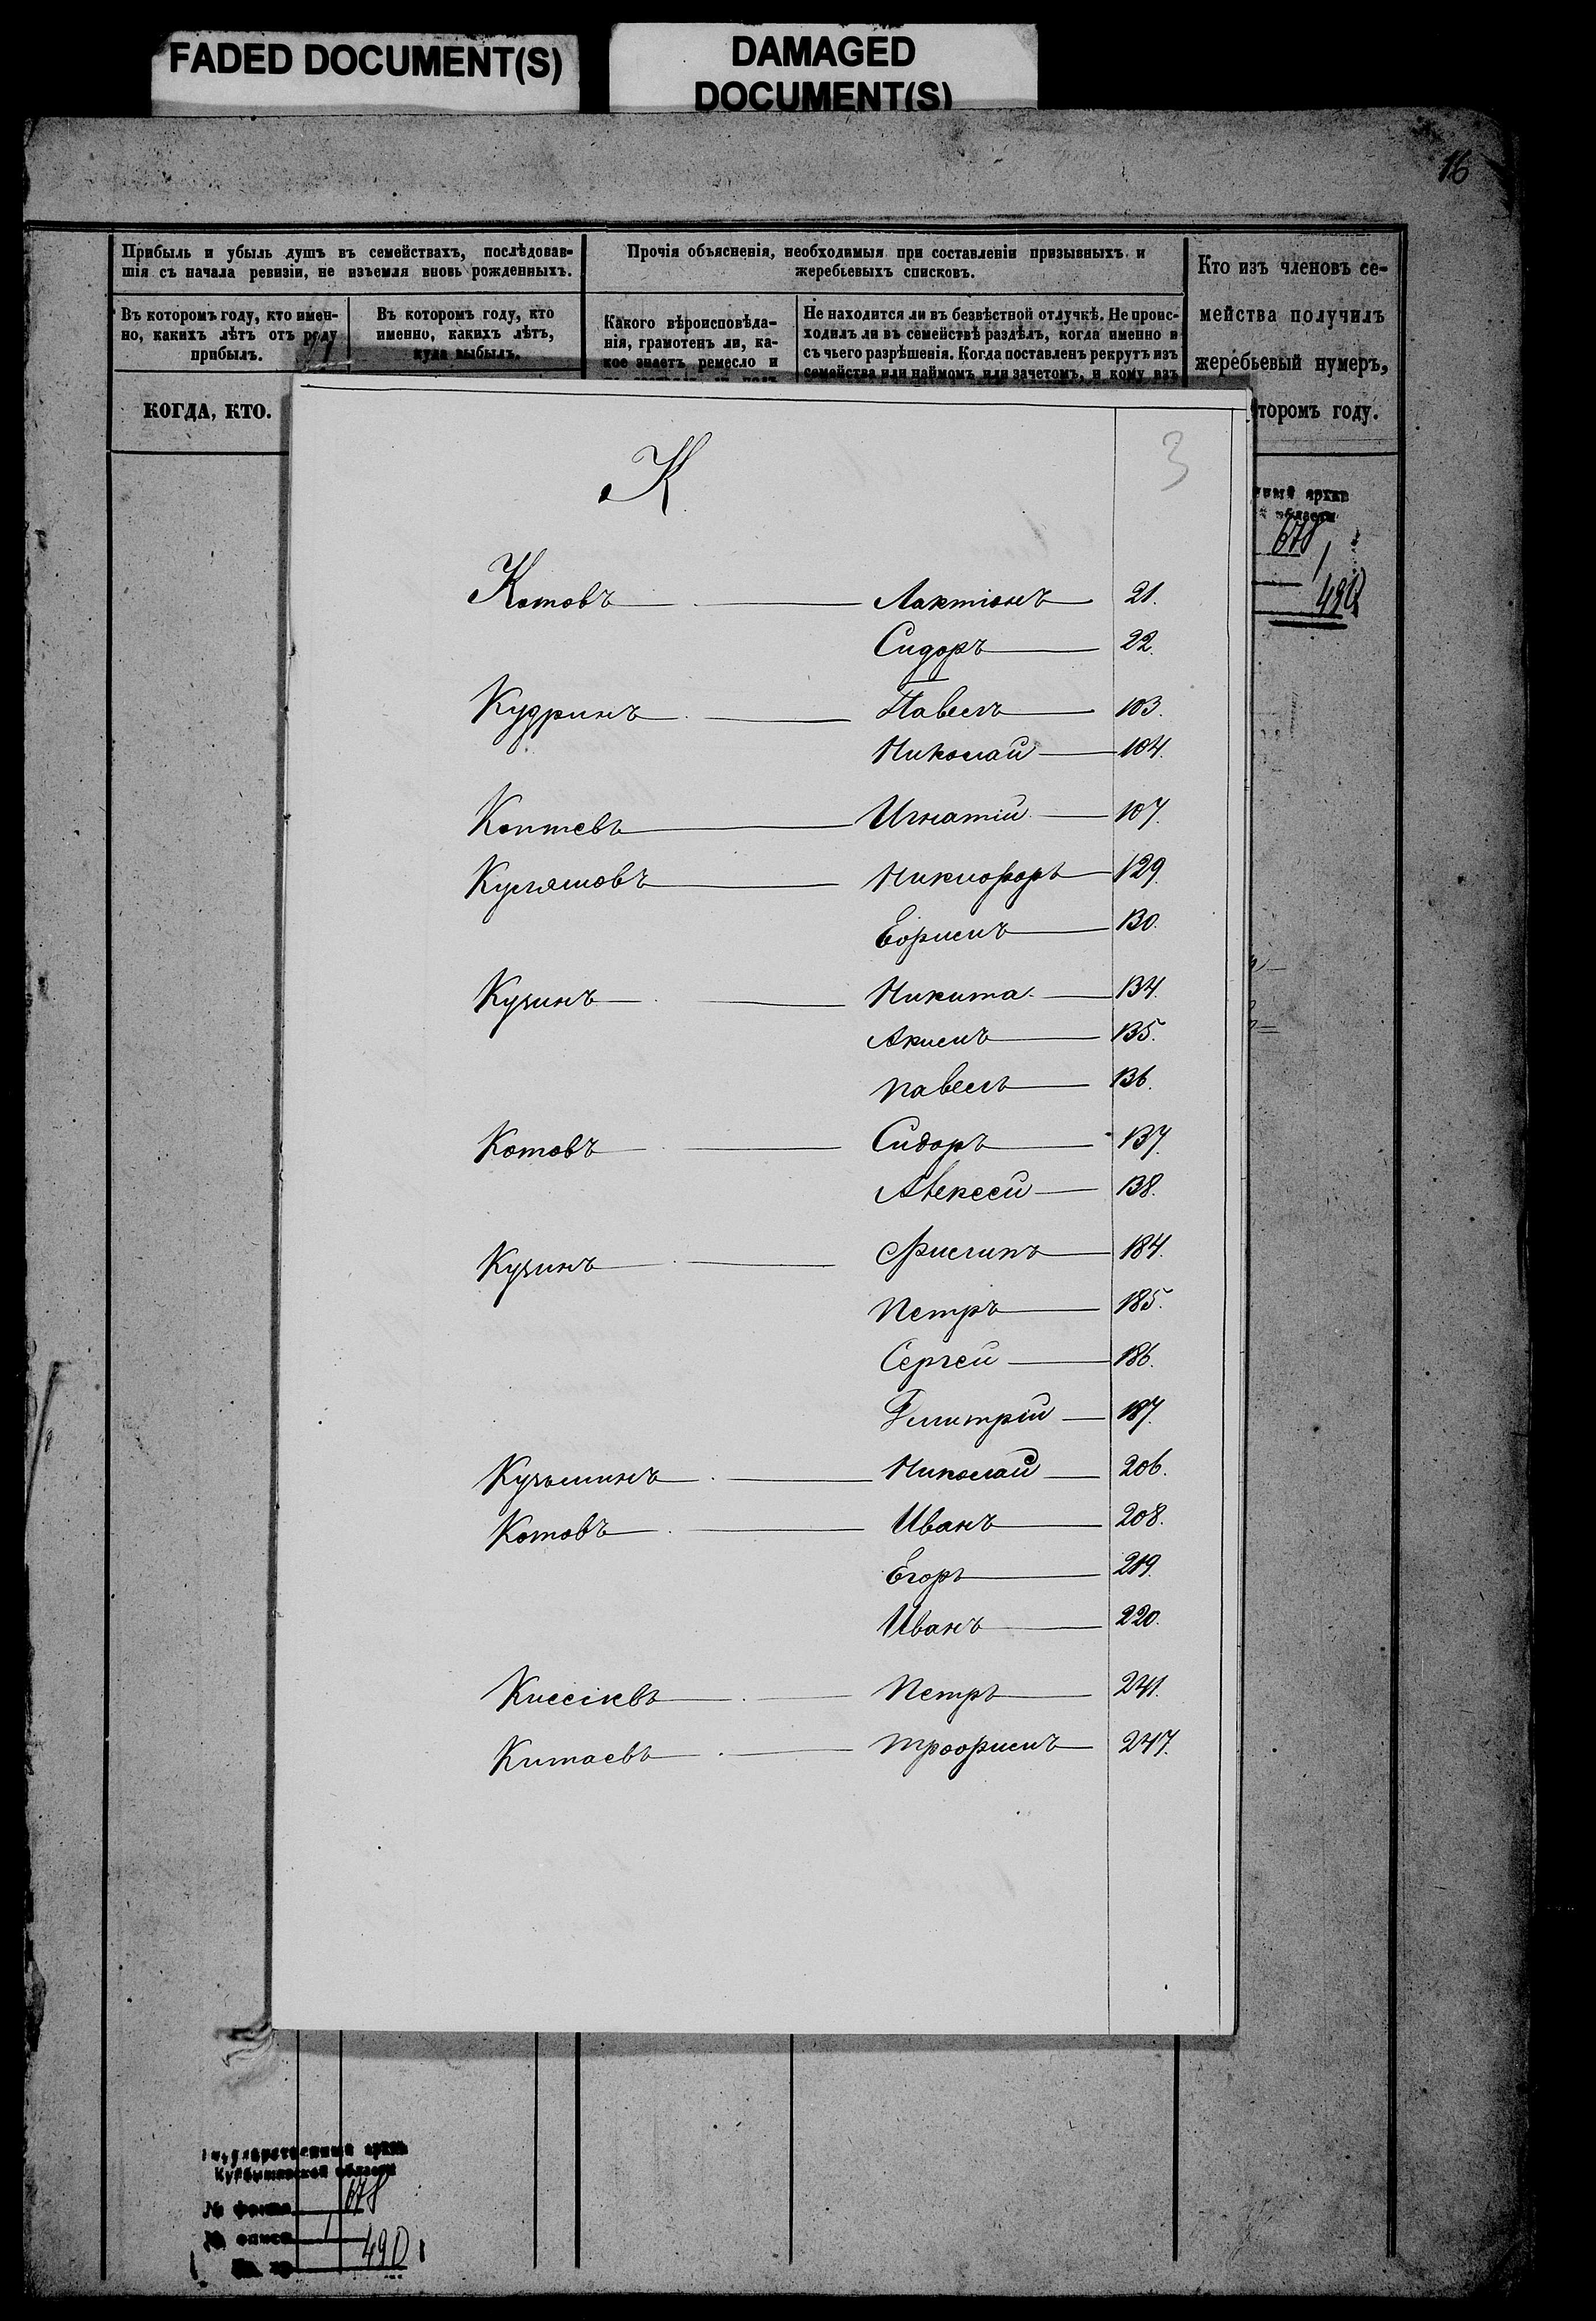 FADED DOCUMENT(S)
DAMAGED
DOCUMENT(S)
16
Прибыль и убыль душъ въ семействахъ, послѣдовав-
шія съ начала ревизіи, не изъемля вновь рожденныхъ.
Въ которомъ году, кто имен-
но, какихъ лѣтъ отъ роду
прибылъ.
Въ которомъ году, кто
именно, какихъ лѣтъ,
куда выбылъ.
КОГДА, КТО.
Прочія объясненія, необходимыя при составленіи призывныхъ и
жеребьевыхъ списковъ.
Какого вѣроисповѣда-
нія, грамотенъ ли, ка-
кое знаетъ ремесло и
Не находится ли въ безвѣстной отлучкѣ. Не проис-
ходилъ ли въ семействѣ раздѣлъ, когда именно и
съ чьего разрѣшенія. Когда поставленъ рекрутъ изъ
семейства или наймомъ или зачетомъ, и кому изъ
Кто изъ членовъ се-
мейства получилъ
жеребьевый нумеръ,
торомъ году.
К
3
Котовъ Лактіонъ 21.
Сидоръ 22.
Кудринъ Павелъ 103.
Николай 104.
Коптевъ Игнатій 107.
Кулямовъ Никифоръ 129.
Борисъ 130.
Кузинъ Никита 134.
Акимъ 135.
Павелъ 136.
Котовъ Сидоръ 137.
Алексей 138.
Кузинъ Филипъ 184.
Петръ 185.
Сергей 186.
Дмитрій 187.
Кузьминъ Николай 206.
Котовъ Иванъ 208.
Егоръ 219.
Иванъ 220.
Петръ 241.
Китаевъ Трофимъ 247.
архив
области
678
1
490
Государственный архив
Куйбышевской области
№ фонда 678
№ описи 1
490